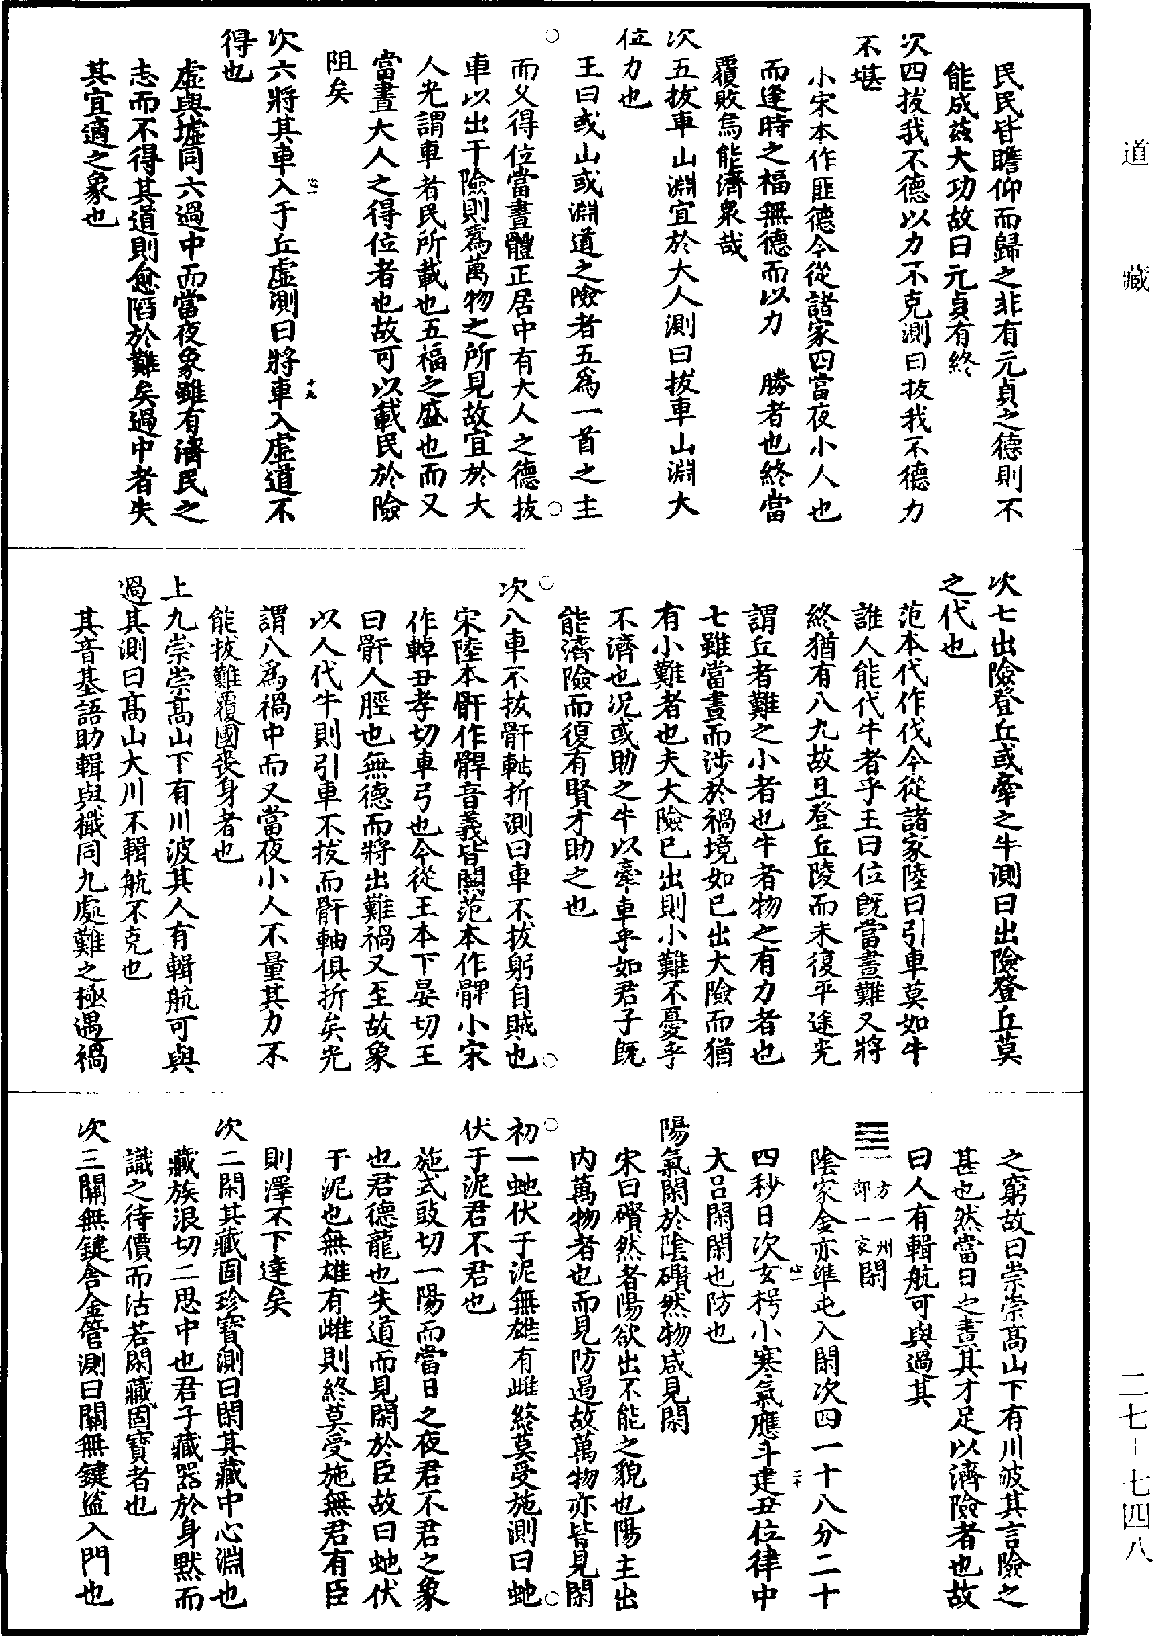 民民皆瞻仰而歸之非有元貞之德則不
能成茲大功故曰元貞有終
次四拔我不德以力不克測曰拔我不德力
不堪
小宋本作匪德今從諸家四當夜小人也
而逢時之福無德而以力 勝者也終當
覆敗焉能濟衆哉
次五拔車山淵宜於大人測曰拔車山淵大
位力也
王曰或山或淵道之險者五爲一首之主
而又得位當晝體正居中有大人之德拔
車以出于險則爲萬物之所見故宜於大
人光謂車者民所載也五福之盛也而又
當晝大人之得位者也故可以載民於險
阻矣
次六將其車入于丘虛測曰將車入虛道不
得也
虛與墟同六過中而當夜象雖有濟民之
志而不得其道則愈陷於難矣過中者失
其宜適之象也
次七出險登丘或牽之牛測曰出險登丘莫
之代也
范本代作伐今從諸家陸曰引車莫如牛
誰人能代牛者乎王曰位旣當晝難又將
終猶有八九故且登丘陵而未復平途光
謂丘者難之小者也牛者物之有力者也
七雖當晝而涉於禍境如已出大險而猶
有小難者也夫大險已出則小難不憂乎
不濟也况或助之牛以牽車乎如君子旣
能濟險而復有賢才助之也
次八車不拔骭軸折測曰車不拔躬自賊也
宋陸本骭作髀音義皆闕范本作髀小宋
作䡴丑孝切車弓也今從王本下晏切王
曰骭人脛也無德而將出難禍又至故象
以人代牛則引車不拔而骭軸俱折矣光
謂八爲禍中而又當夜小人不量其力不
能拔難覆國喪身者也
上九崇崇高山下有川波其人有輯航可與
過其測曰高山大川不輯航不克也
其音基語助輯與檝同九處難之極遇禍
之窮故曰崇崇高山下有川波其言險之
甚也然當日之晝其才足以濟險者也故
曰人有輯航可與過其
䷂一方一州一部一家閑
陰家金亦準屯入閑次四一十八分二十
四秒日次女枵小寒氣應斗建丑位律中
大呂閑閑也防也
陽氣閑於陰礥然物咸見閑
宋曰礥然者陽欲出不能之貌也陽主出
内萬物者也而見防遏故萬物亦皆見閑
初一虵伏于泥無雄有雌終莫受施測曰虵
伏于泥君不君也
施式豉切一陽而當日之夜君不君之象
也君德龍也失道而見閑於臣故曰虵伏
于泥也無雄有雌則終莫受施無君有臣
則澤不下達矣
次二閑其藏固珍寶測曰閑其藏中心淵也
藏族浪切二思中也君子藏器於身默而
識之待價而沽若閑藏固寶者也
次三關無鍵舍金管測曰關無鍵盜入門也
道 藏
二七-七四八